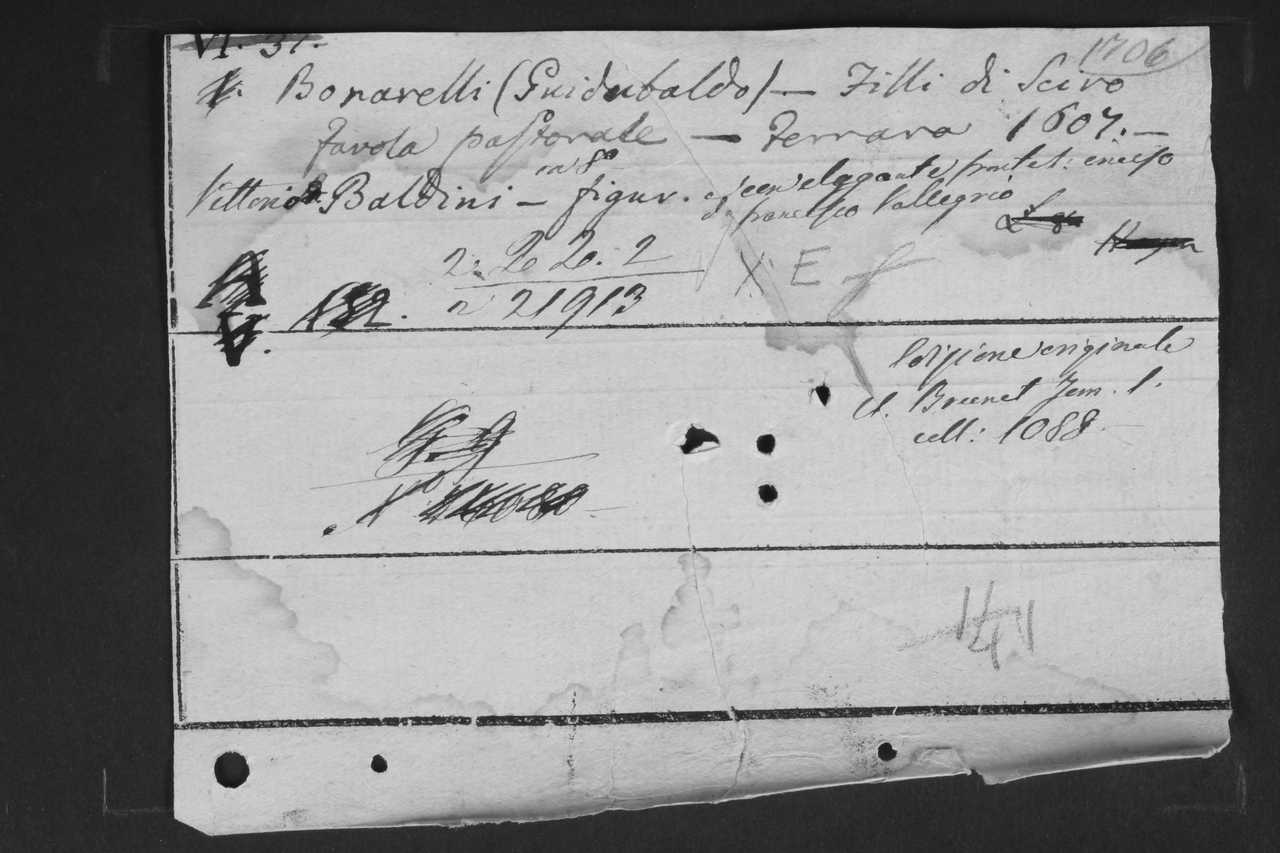 VI. 31.
1706
Bonarelli (Guidubaldo) — Filli di Sciro
favola pastorale — Ferrara 1607. —
in 8°
Vittorio Baldini — figur. con elegante frontesp: inciso
da Francesco Vallegrio
2. 20 20. 2
X E f
n 21913
Edizione originale
cf. Brunet Tom. 1.
coll: 1088
N°
141